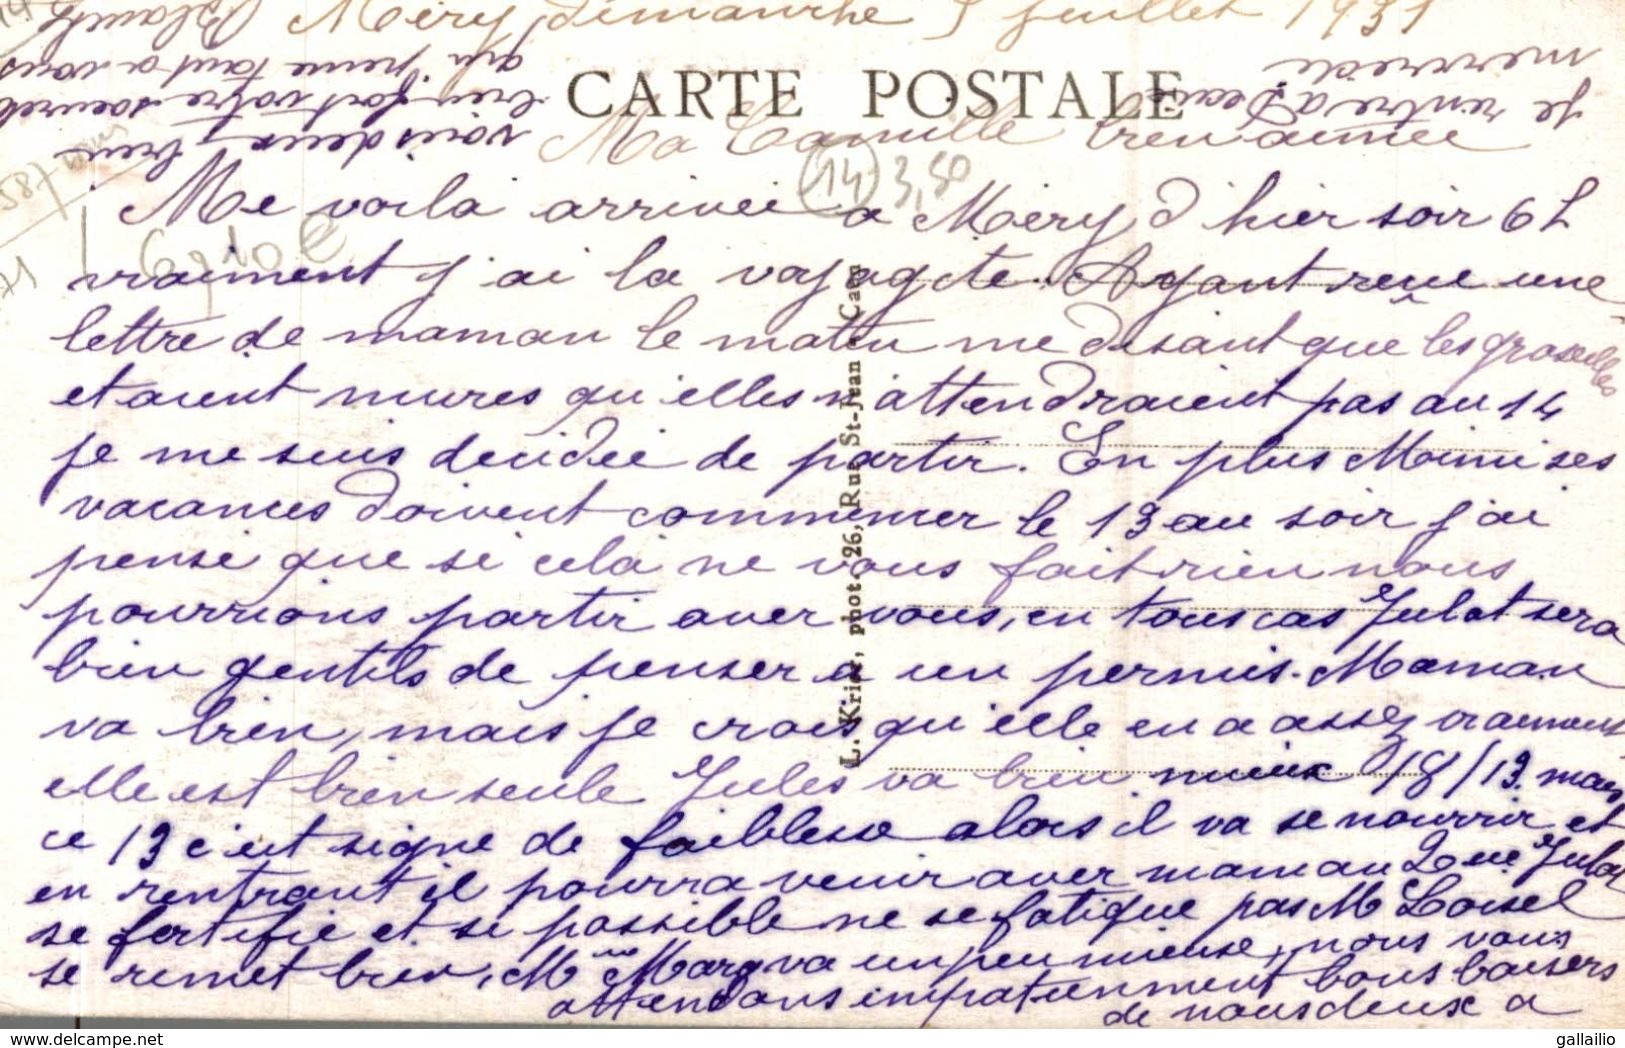 Méry dimanche 5 juillet 1931
CARTE POSTALE
Ma Camille bien aimée
Me voila arrivée a Méry d'hier soir 6h
vraiment j'ai la voyagite. Ayant reçue une
lettre de maman le matin me disant que les groseilles
etaient mures qu'elles n'attendraient pas au 14
je me suis decidée de partir. En plus Mimi ses
vacances doivent commencer le 13 au soir j'ai
pensé que si cela ne vous fait rien nous
pourrions partir avec vous, en tous cas Julot sera
bien gentils de penser a un permis. Maman
va bien, mais je crois qu'elle en a assez vraiment
elle est bien seule Jules va bien mieux 18/13 mais
ce 13 c'est signe de faiblesse alors il va se nourrir et
en rentrant il pourra venir avec maman Que Julot
se fortifie et si possible ne se fatigue pas M Loisel
se remet bien, Mme Marg va un peu mieuse, nous vous
attendons impatiemment bons baisers
de nous deux a
vous deux, bien
bien fort votre soeurette
qui pense tant a vous
Blanche
Je rentre a Decize
mercredi
L. Kriek, phot. 26, Rue St-Jean - Caen
(14) 3,50
587
71
14
gallailio